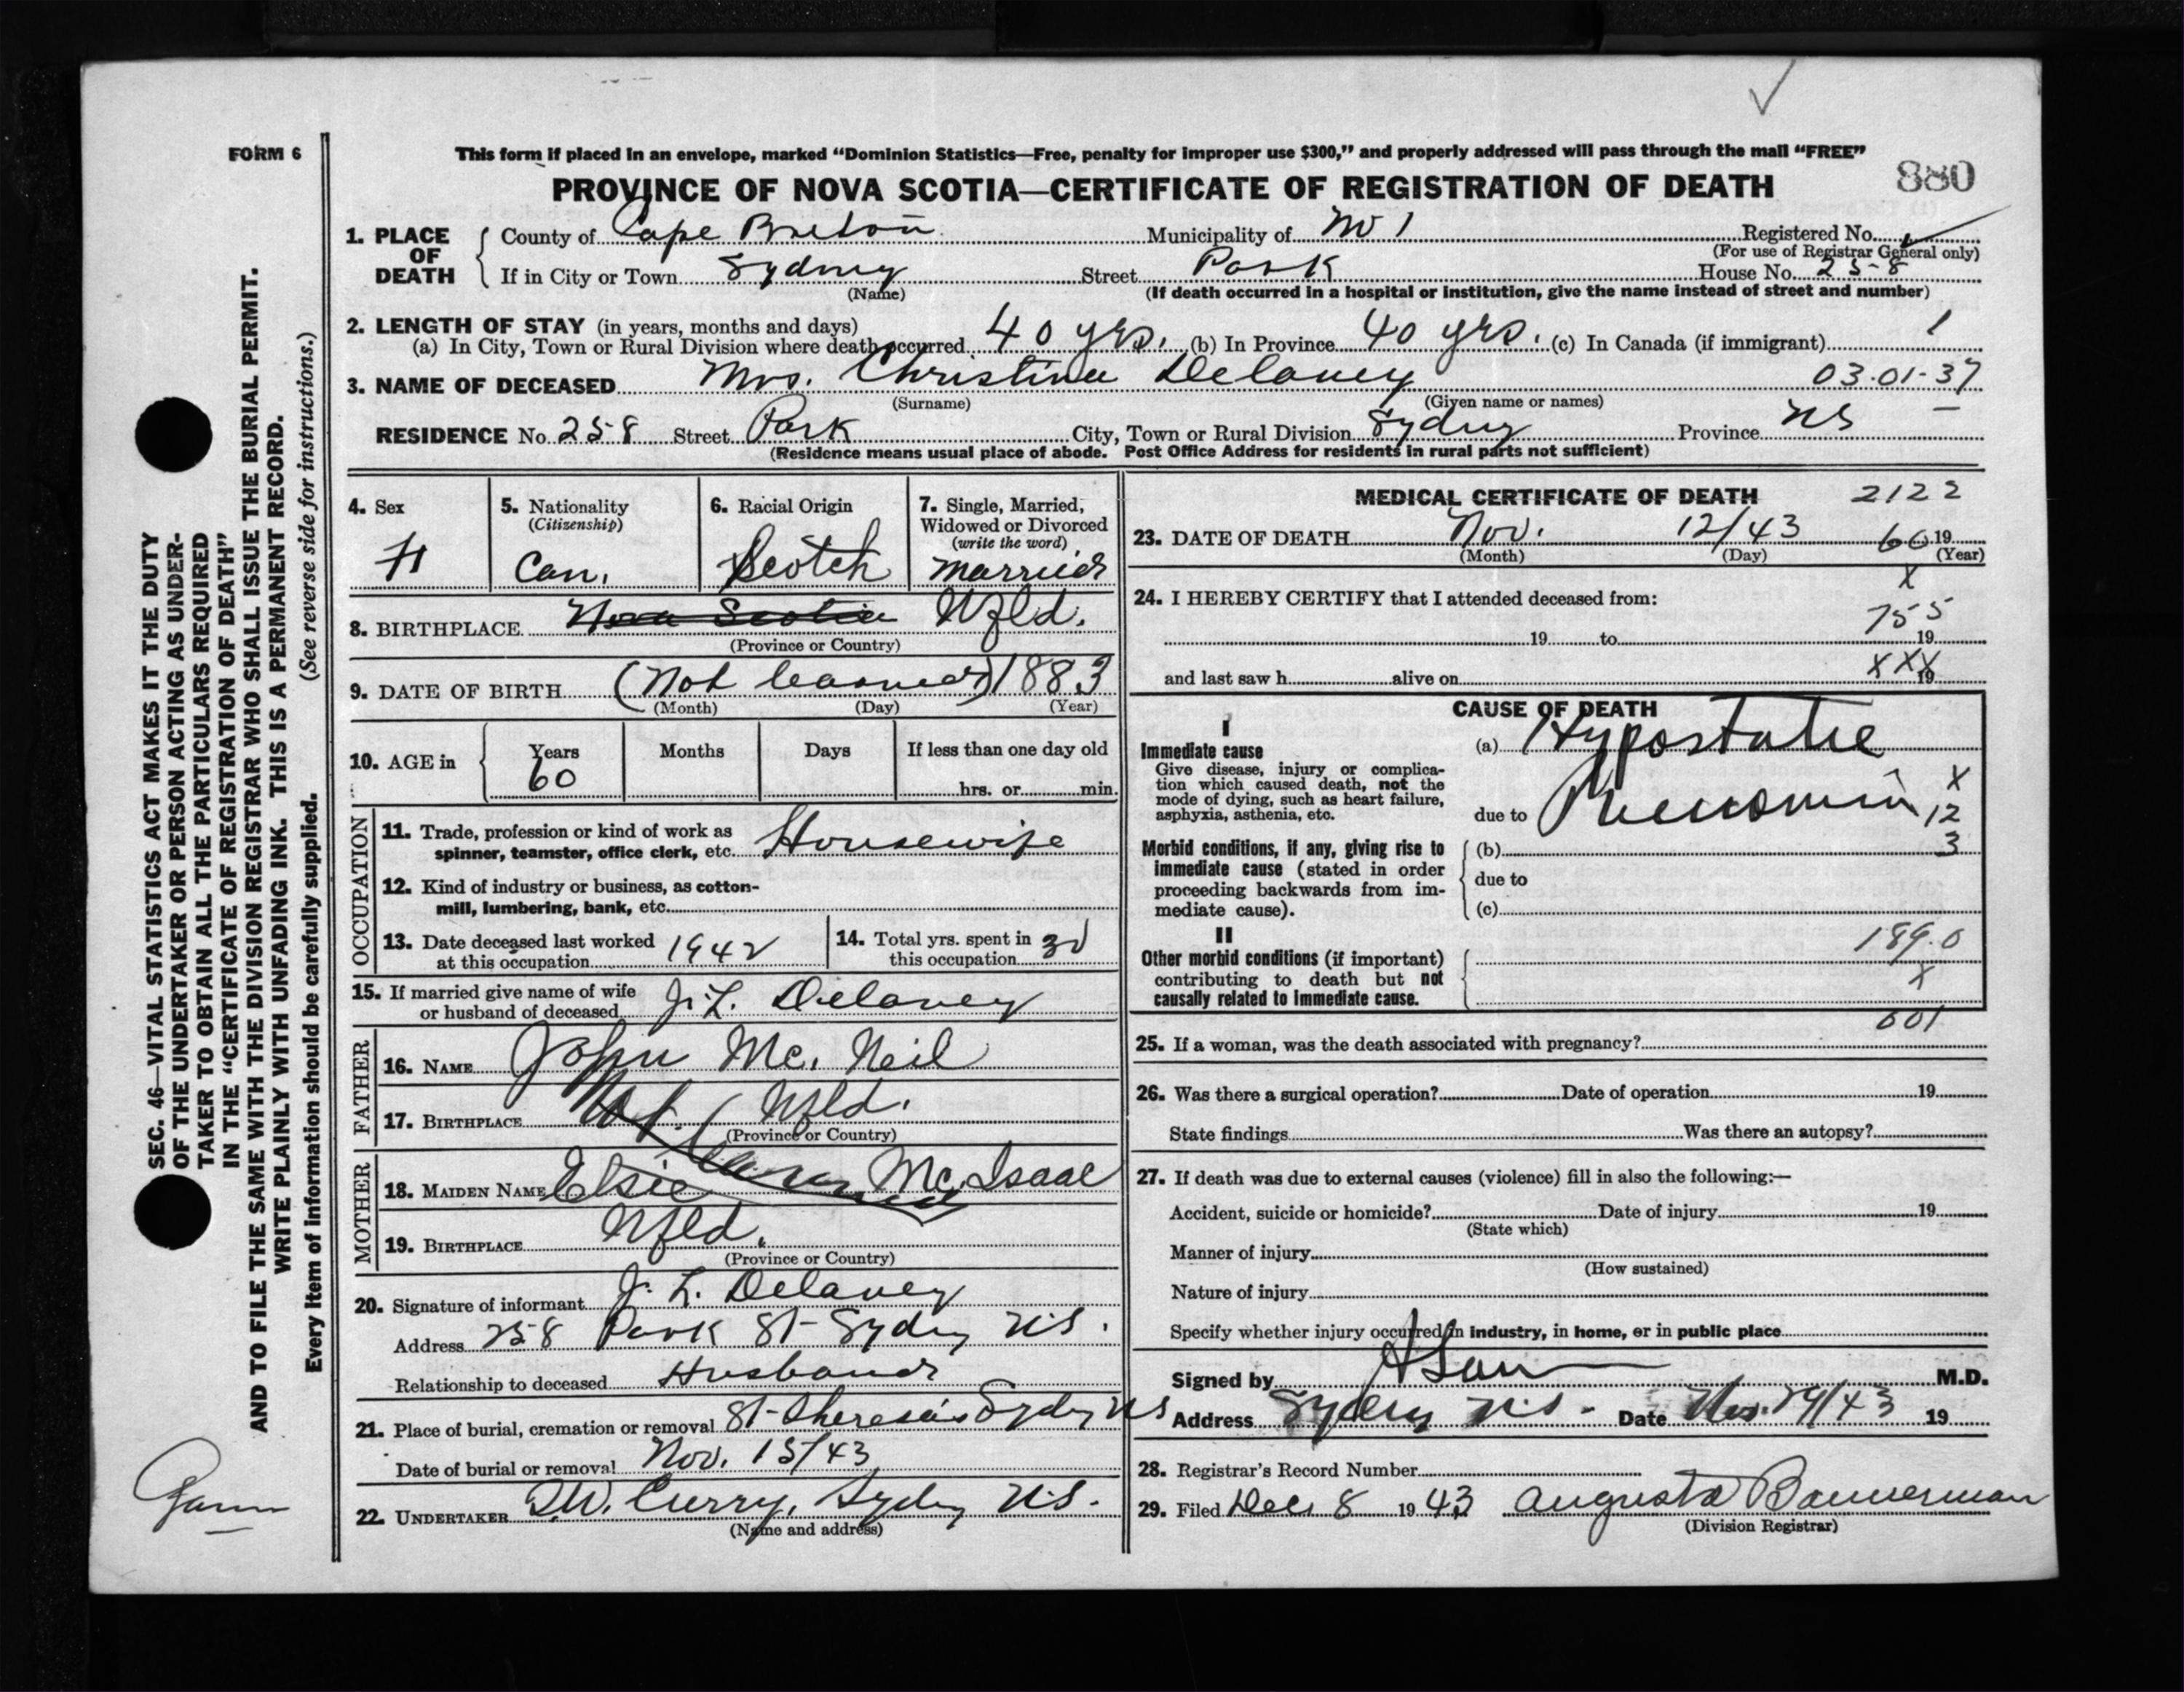 FORM 6
This form if placed in an envelope, marked “Dominion Statistics—Free, penalty for improper use $300,” and properly addressed will pass through the mail “FREE”
PROVINCE OF NOVA SCOTIA—CERTIFICATE OF REGISTRATION OF DEATH
880
1. PLACE OF DEATH
County of Cape Breton Municipality of No 1 Registered No.
(For use of Registrar General only)
If in City or Town Sydney Street Park House No. 258
(Name) (If death occurred in a hospital or institution, give the name instead of street and number)
2. LENGTH OF STAY (in years, months and days)
(a) In City, Town or Rural Division where death occurred 40 yrs. (b) In Province 40 yrs. (c) In Canada (if immigrant) 1
3. NAME OF DECEASED Mrs. Christina Delaney 03.01-37
(Surname) (Given name or names)
RESIDENCE No. 258 Street Park City, Town or Rural Division Sydney Province NS
(Residence means usual place of abode. Post Office Address for residents in rural parts not sufficient)
4. Sex
5. Nationality
(Citizenship)
6. Racial Origin
7. Single, Married, Widowed or Divorced
(write the word)
Can. Scotch Married
8. BIRTHPLACE Nova Scotia Nfld.
(Province or Country)
9. DATE OF BIRTH (Not learned) 1883
(Month) (Day) (Year)
10. AGE in
Years Months Days If less than one day old
60 hrs. or min.
OCCUPATION
11. Trade, profession or kind of work as
spinner, teamster, office clerk, etc. Housewife
12. Kind of industry or business, as cotton-
mill, lumbering, bank, etc.
13. Date deceased last worked
at this occupation 1942
14. Total yrs. spent in
this occupation 30
15. If married give name of wife
or husband of deceased J. L. Delaney
FATHER
16. NAME John Mc. Neil
17. BIRTHPLACE Not learned Nfld.
(Province or Country)
MOTHER
18. MAIDEN NAME Elsie Mc. Isaac
19. BIRTHPLACE Nfld.
(Province or Country)
20. Signature of informant J. L. Delaney
Address 258 Park St- Sydney N.S.
Relationship to deceased Husband
21. Place of burial, cremation or removal St- Theresa's Sydney NS
Date of burial or removal Nov. 15/43
22. UNDERTAKER Curry, Sydney N.S.
(Name and address)
MEDICAL CERTIFICATE OF DEATH 2122
23. DATE OF DEATH Nov. 12/43 60 19
(Month) (Day) (Year)
X
24. I HEREBY CERTIFY that I attended deceased from:
755
19 to 19
XXX
and last saw h alive on 19
CAUSE OF DEATH
I
Immediate cause
Give disease, injury or complica-
tion which caused death, not the
mode of dying, such as heart failure,
asphyxia, asthenia, etc.
(a) Hypostatic
due to Pneumonia
X
12
3
Morbid conditions, if any, giving rise to
immediate cause (stated in order
proceeding backwards from im-
mediate cause).
(b)
due to
(c)
II
Other morbid conditions (if important)
contributing to death but not
causally related to immediate cause.
189.0
X
001
25. If a woman, was the death associated with pregnancy?
26. Was there a surgical operation? Date of operation 19
State findings Was there an autopsy?
27. If death was due to external causes (violence) fill in also the following:—
Accident, suicide or homicide? Date of injury 19
(State which)
Manner of injury
(How sustained)
Nature of injury
Specify whether injury occurred in industry, in home, or in public place
Signed by M.D.
Address Sydney N.S. Date 43 19
28. Registrar's Record Number
29. Filed Dec 8 1943 Augusta Bannerman
(Division Registrar)
SEC. 46—VITAL STATISTICS ACT MAKES IT THE DUTY
OF THE UNDERTAKER OR PERSON ACTING AS UNDER-
TAKER TO OBTAIN ALL THE PARTICULARS REQUIRED
IN THE “CERTIFICATE OF REGISTRATION OF DEATH”
AND TO FILE THE SAME WITH THE DIVISION REGISTRAR WHO SHALL ISSUE THE BURIAL PERMIT.
WRITE PLAINLY WITH UNFADING INK. THIS IS A PERMANENT RECORD.
Every item of information should be carefully supplied. (See reverse side for instructions.)